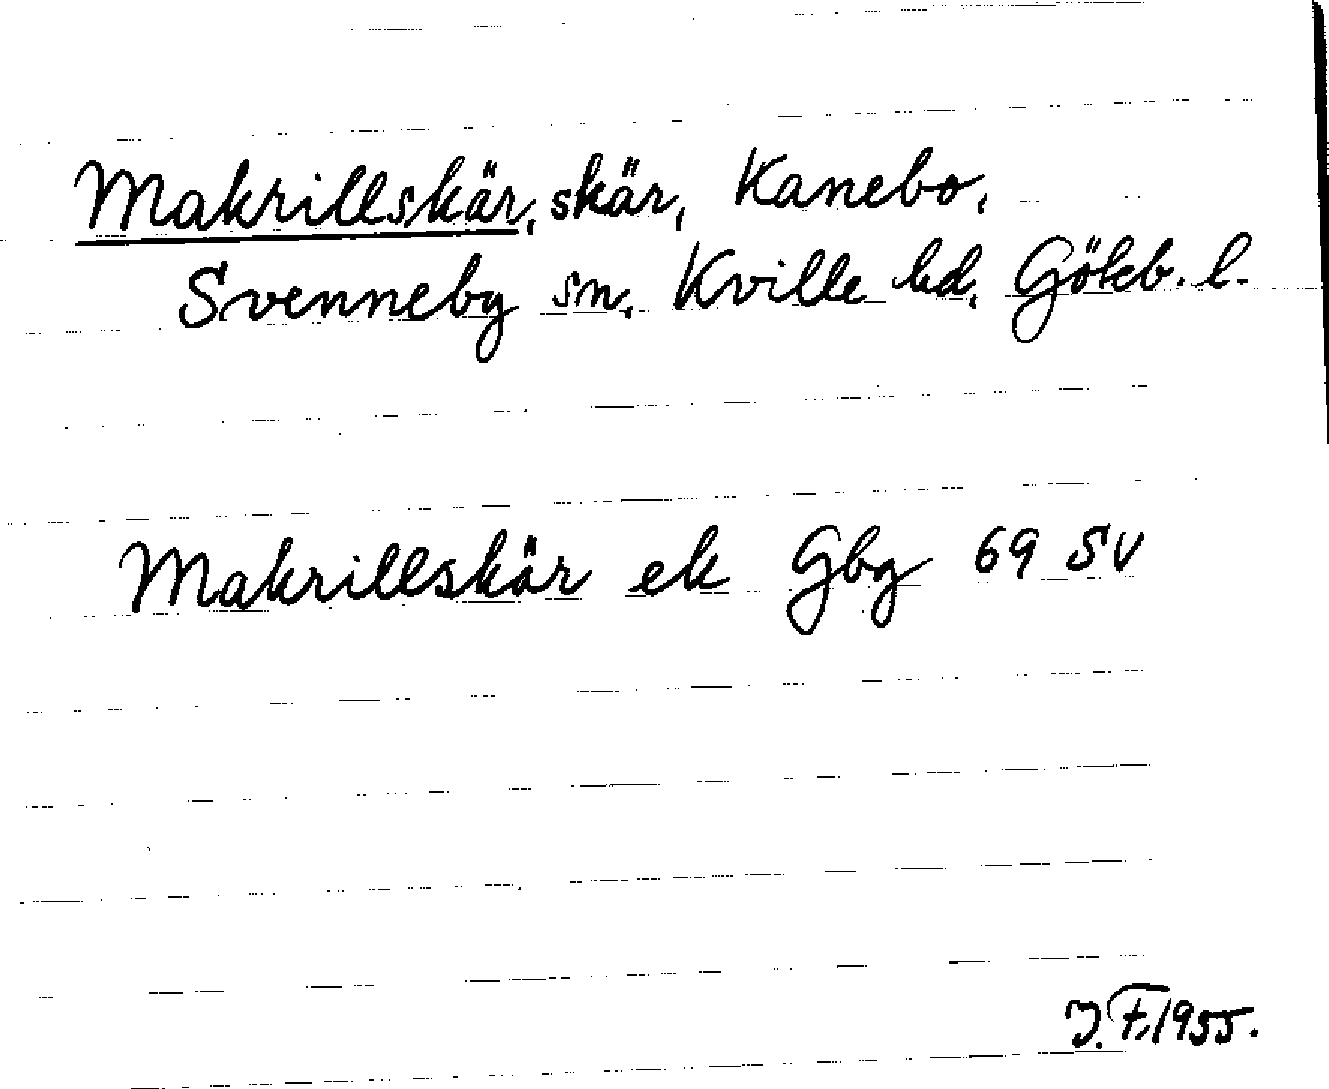 Makrillskär, skär, Kanebo,
Svenneby sn, Kville hd, Göteb. l.
Makrillskär ek Gbg 69 SV
J.F. 1955.